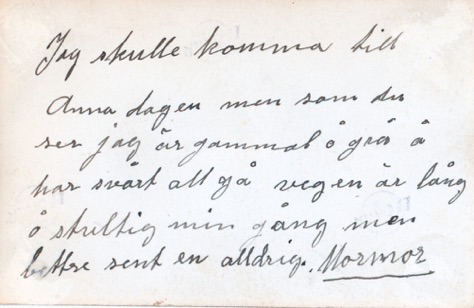 Jag skulle komma till
Anna dagen men som du
ser jag är gammal å grå å
har svårt att gå vegen är lång
å stultig min gång men
bettre sent en alldrig. Mormor